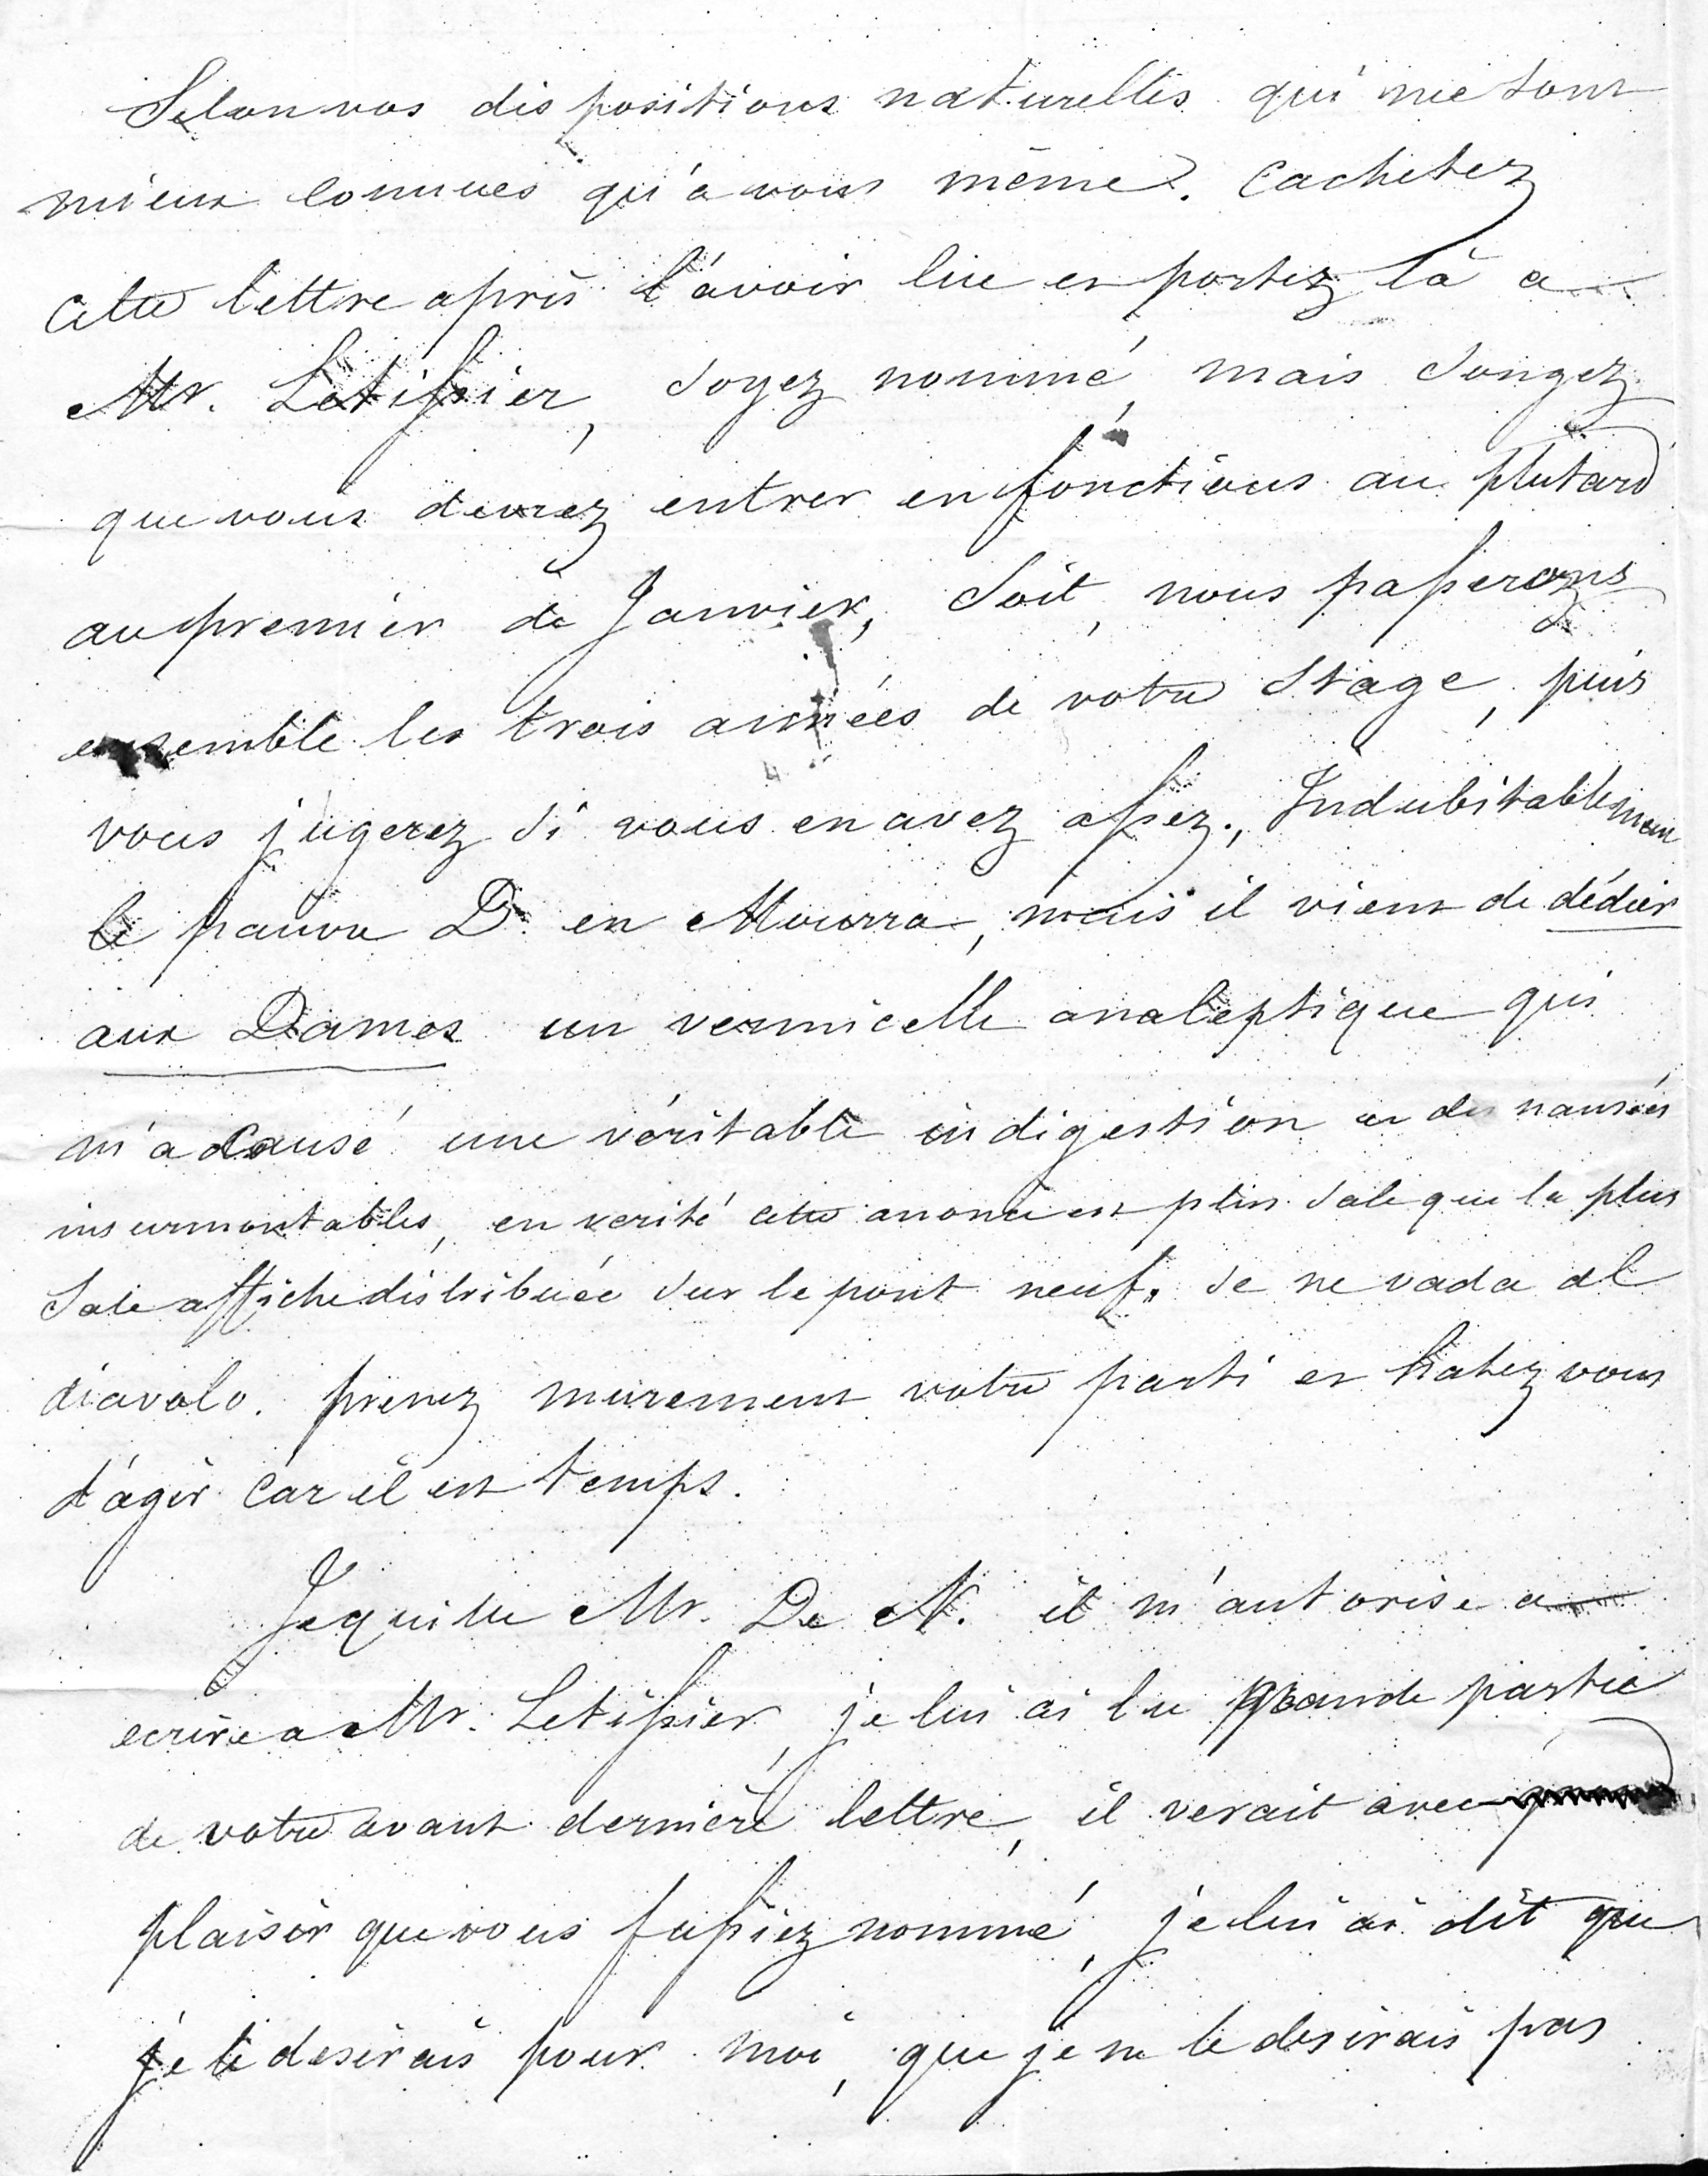 Selon vos dispositions naturelles qui me sont
mieux connues qu'a vous même. Cachetez
cette lettre après l'avoir lue et portez là a
Mr. Letissier, soyez nommé, mais songez
que vous devrez entrer en fonctions au plutard
au premier de Janvier, soit, nous passerons
ensemble les trois années de votre stage, puis
vous jugerez si vous en avez assez., Indubitablement
le pauvre D. en Mourra, mais il vient de dédier
aux Dames un vermicelle analeptique qui
m'a causé une véritable indigestion et des nausées
insurmontables, en verité cette anonce est plus sale que la plus
sale affiche distribuée sur le pont neuf. se ne vada al
diavolo. prenez murement votre parti et hatez vous
d'agir car il est temps.
Je quitte Mr. De N. il m'autorise a
ecrire a Mr. Letissier, je lui ai lu grande partie
de votre avant dernière lettre, il verait avec
plaisir que vous fussiez nommé, je lui ai dit que
je le desirais pour moi, que je ne le desirais pas